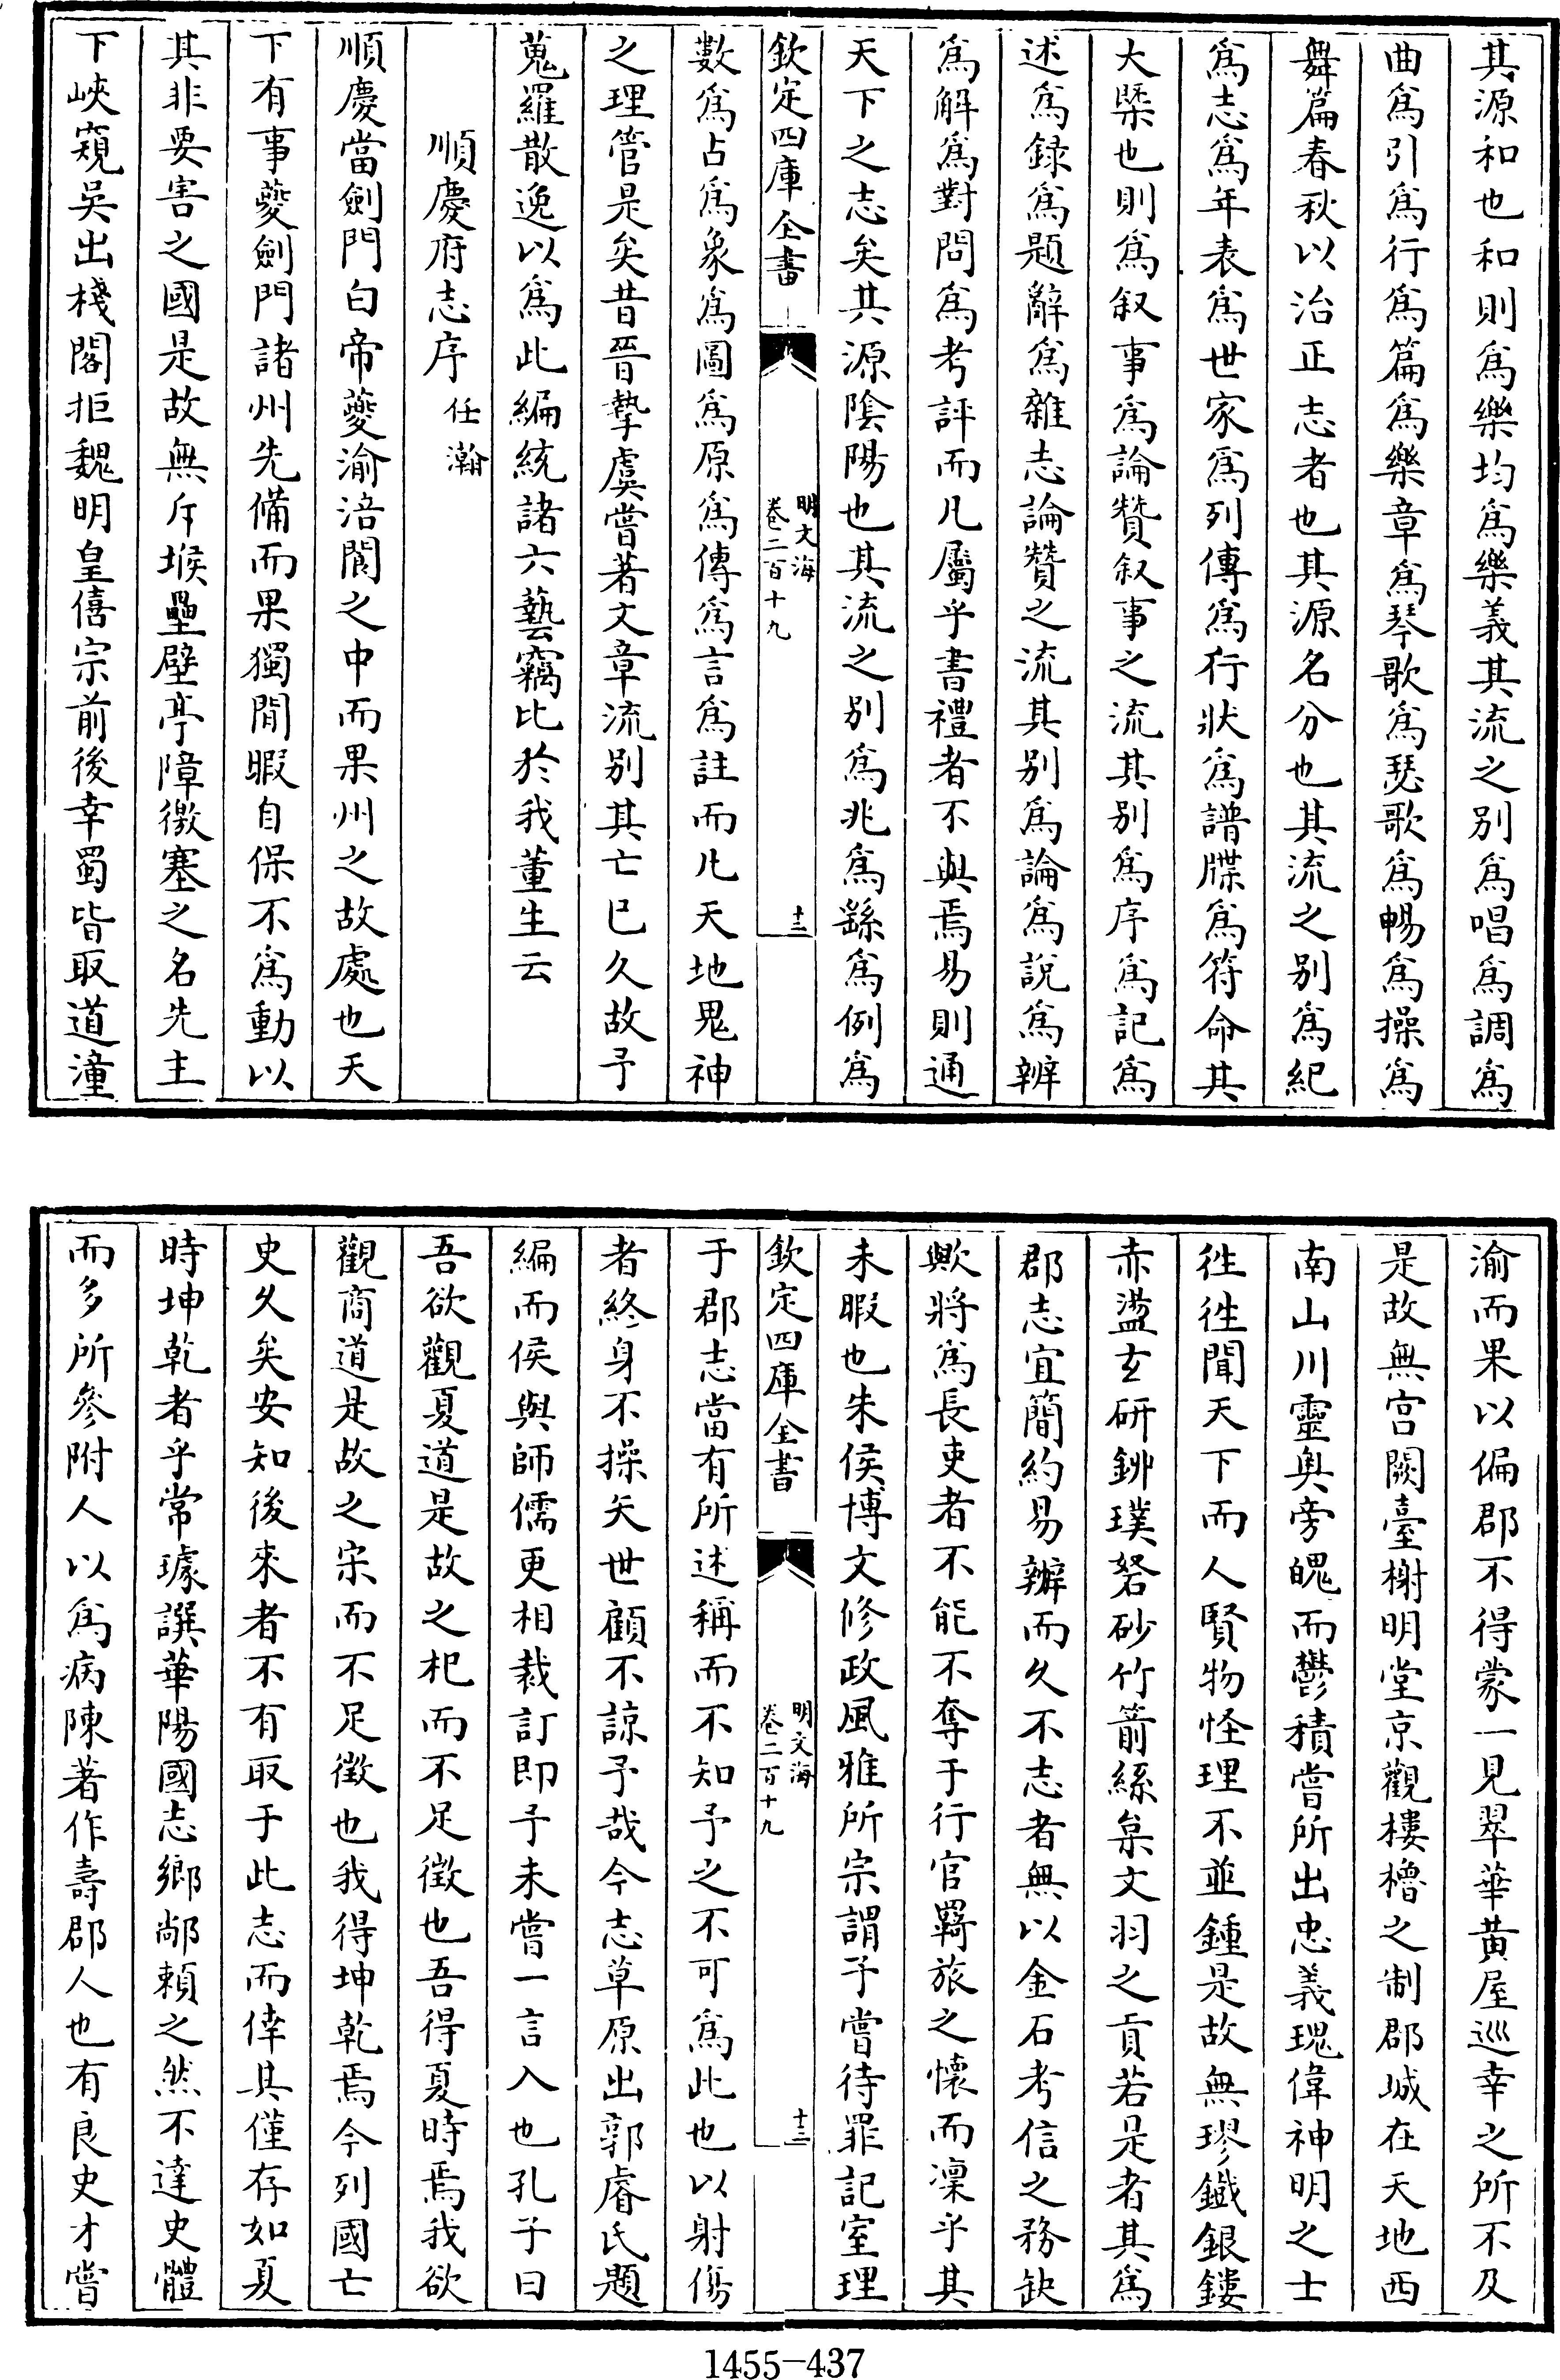 其源和也和則爲樂均爲樂義其流之别爲唱爲調爲
曲爲引爲行爲篇爲樂章爲琴歌爲瑟歌爲暢爲操爲
舞篇春秋以治正志者也其源名分也其流之别爲紀
爲志爲年表爲世家爲列傳爲行狀爲譜牒爲符命其
大槩也則爲叙事爲論贊叙事之流其别爲序爲記爲
述爲録爲題辭爲雜志論贊之流其别爲論爲說爲辨
爲解爲對問爲考評而凡屬乎書禮者不與焉易則通
天下之志矣其源陰陽也其流之别爲兆爲繇爲例爲
欽定四庫全書
明文海
卷二百十九
十三
數爲占爲象爲圖爲原爲傳爲言爲註而凡天地鬼神
之理管是矣昔晉摯虞嘗著文章流别其亡已久故予
蒐羅散逸以爲此編統諸六藝竊比於我董生云
順慶府志序 任瀚
順慶當劍門白帝夔渝涪閬之中而果州之故處也天
下有事夔劍門諸州先備而果獨閒暇自保不爲動以
其非要害之國是故無斥堠壘壁亭障徼塞之名先主
下峽窺吳出棧閣拒魏明皇僖宗前後幸蜀皆取道潼
渝而果以偏郡不得蒙一見翠華黄屋巡幸之所不及
是故無宫闕臺榭明堂京觀樓櫓之制郡城在天地西
南山川靈奥旁魄而鬱積嘗所出忠義瑰偉神明之士
徃徃聞天下而人賢物怪理不並鍾是故無璆鐵銀鏤
赤盬玄研鉚璞砮砂竹箭絲枲文羽之貢若是者其爲
郡志宜簡約易辦而久不志者無以金石考信之務缺
歟將爲長吏者不能不奪于行官羇旅之懷而凜乎其
未暇也朱侯博文修政風雅所宗謂予嘗待罪記室理
欽定四庫全書
明文海
卷二百十九
十三
于郡志當有所述稱而不知予之不可爲此也以射傷
者終身不操矢世顧不諒予哉今志草原出郭睿氏題
編而侯與師儒更相裁訂即予未嘗一言入也孔子曰
吾欲觀夏道是故之杞而不足徵也吾得夏時焉我欲
觀商道是故之宋而不足徵也我得坤乾焉今列國亡
史久矣安知後來者不有取于此志而倖其僅存如夏
時坤乾者乎常璩譔華陽國志鄉鄗頼之然不達史體
而多所參附人以爲病陳著作壽郡人也有良史才嘗
1455-437